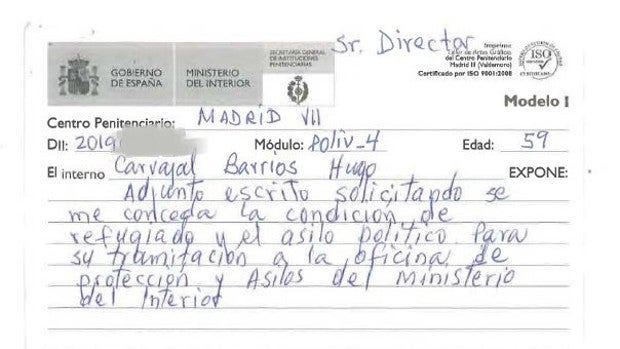 Sr. Director
SECRETARÍA GENERAL
DE INSTITUCIONES
PENITENCIARIAS
GOBIERNO
DE ESPAÑA
MINISTERIO
DEL INTERIOR
Imprime
Taller de Artes Gráficas
del Centro Penitenciario
Madrid III (Valdemoro)
Certificado por ISO 9001:2008
ISO
Modelo I
Centro Penitenciario: MADRID VII
DII: 2019 Módulo: Poliv_4 Edad: 59
El interno Carvajal Barrios Hugo, EXPONE:
Adjunto escrito solicitando se
me conceda la condición de
refugiado y el asilo político. Para
su tramitación a la oficina de
protección y Asilos del Ministerio
del Interior